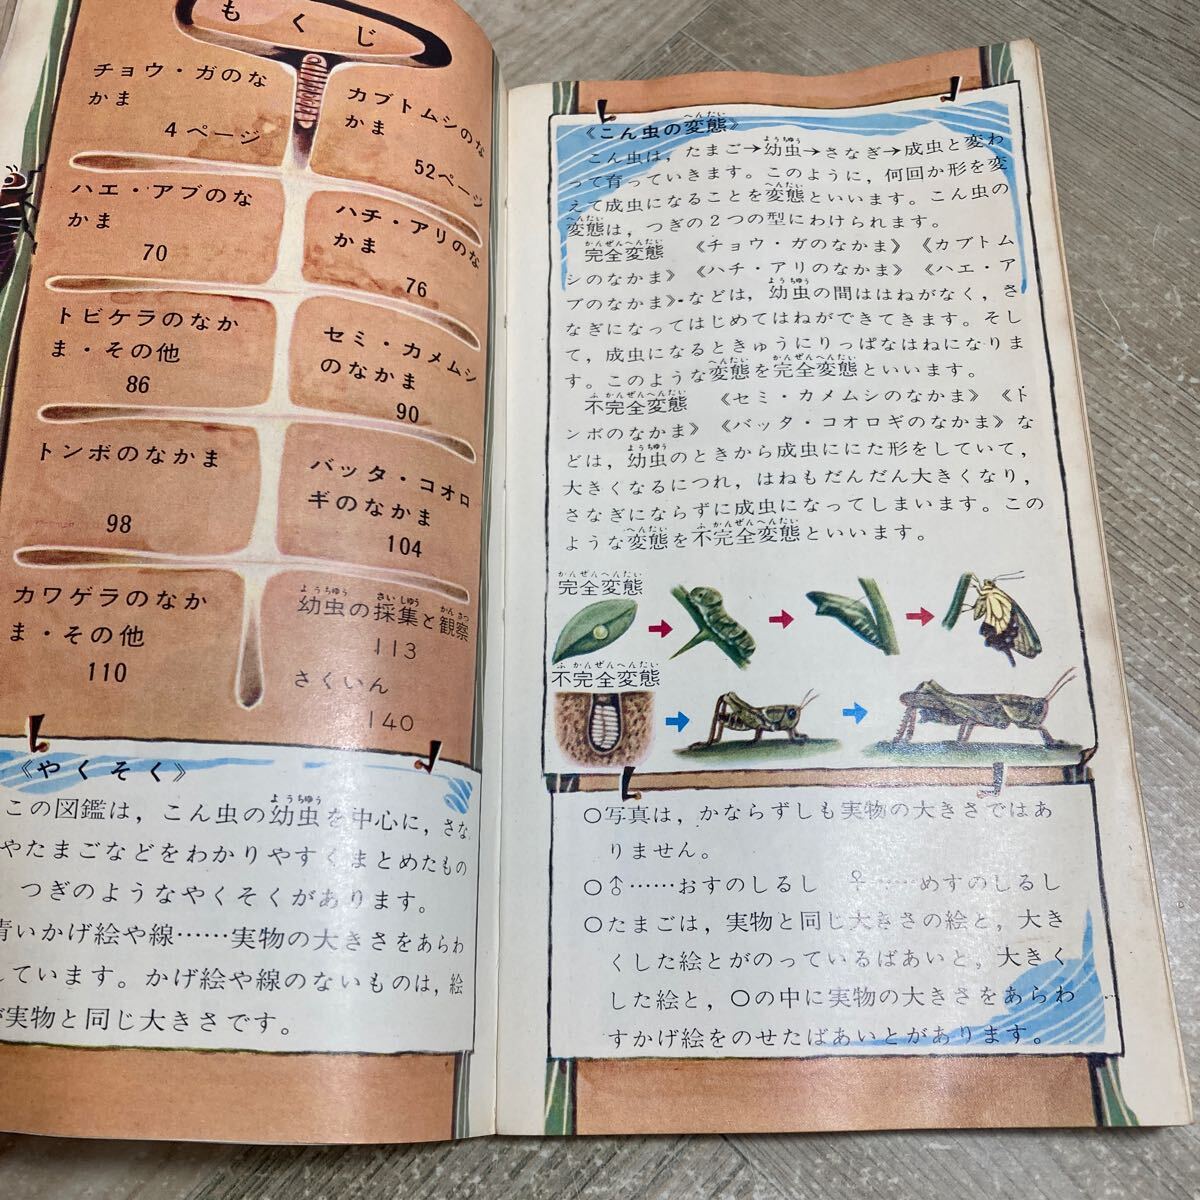 もくじ
チョウ・ガのな
かま
4ページ
カブトムシのな
かま
52ページ
ハエ・アブのな
かま
70
ハチ・アリのな
かま
76
トビケラのなか
ま・その他
86
セミ・カメムシ
のなかま
90
トンボのなかま
98
バッタ・コオロ
ギのなかま
104
カワゲラのなか
ま・その他
110
幼虫の採集と観察
ようちゅう さいしゅう かんさつ
113
さくいん
140
《やくそく》
この図鑑は，こん虫の幼虫を中心に，さな
ようちゅう
やたまごなどをわかりやすくまとめたもの
つぎのようなやくそくがあります。
青いかげ絵や線……実物の大きさをあらわ
しています。かげ絵や線のないものは，絵
が実物と同じ大きさです。
《こん虫の変態》
へんたい
こん虫は，たまご→幼虫→さなぎ→成虫と変わ
ようちゅう
って育っていきます。このように，何回か形を変
えて成虫になることを変態といいます。こん虫の
へんたい
変態は，つぎの２つの型にわけられます。
へんたい
完全変態　《チョウ・ガのなかま》《カブトム
かんぜんへんたい
シのなかま》《ハチ・アリのなかま》《ハエ・ア
ブのなかま》などは，幼虫の間ははねがなく，さ
ようちゅう
なぎになってはじめてはねができてきます。そし
て，成虫になるときゅうにりっぱなはねになりま
す。このような変態を完全変態といいます。
へんたい かんぜんへんたい
不完全変態　《セミ・カメムシのなかま》《ト
ふかんぜんへんたい
ンボのなかま》《バッタ・コオロギのなかま》な
どは，幼虫のときから成虫ににた形をしていて，
ようちゅう
大きくなるにつれ，はねもだんだん大きくなり，
さなぎにならずに成虫になってしまいます。この
ような変態を不完全変態といいます。
へんたい ふかんぜんへんたい
完全変態
かんぜんへんたい
不完全変態
ふかんぜんへんたい
○写真は，かならずしも実物の大きさではあ
りません。
○♂……おすのしるし　♀……めすのしるし
○たまごは，実物と同じ大きさの絵と，大き
くした絵とがのっているばあいと，大きく
した絵と，○の中に実物の大きさをあらわ
すかげ絵をのせたばあいとがあります。